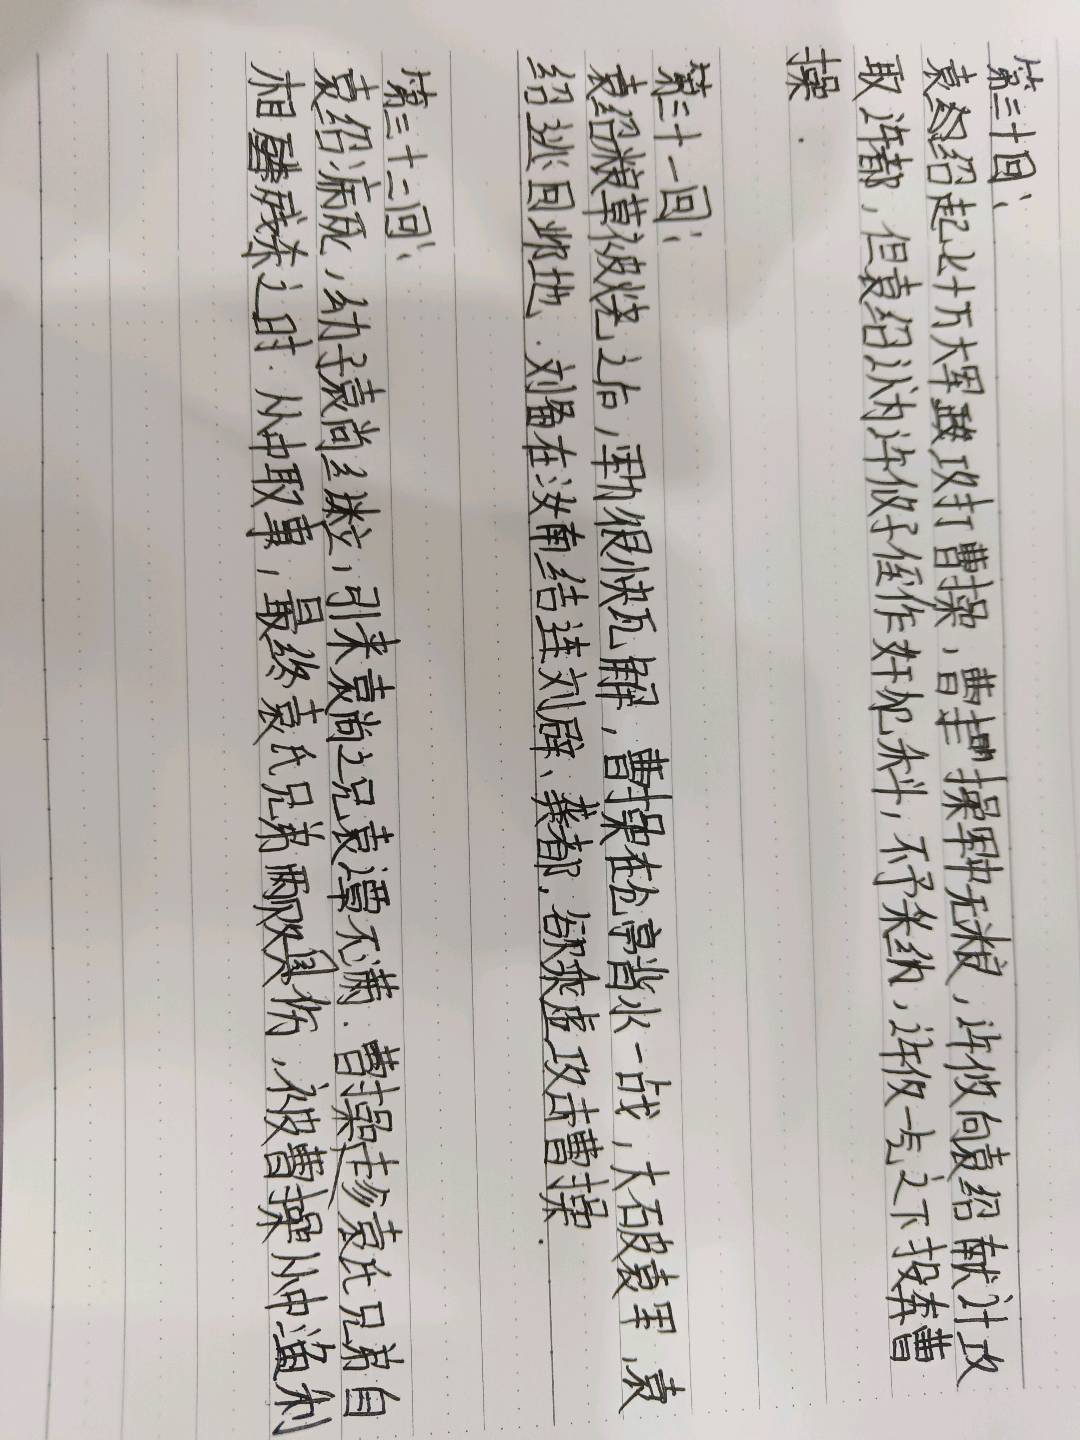 第三十回：
袁绍起七十万大军攻打曹操，曹操军中无粮，许攸向袁绍献计攻
取许都，但袁绍认为许攸子侄作奸犯科，不予采纳，许攸一气之下投奔曹
操．
第三十一回：
袁绍粮草被烧之后，军力很快瓦解，曹操在仓亭背水一战，大破袁军，袁
绍逃回邺地．刘备在汝南结连刘辟、龚都，欲乘虚攻击曹操．
第三十二回：
袁绍病死，幼子袁尚继立，引来袁尚之兄袁谭不满．曹操趁袁氏兄弟自
相残杀之时．从中取事，最终袁氏兄弟两败俱伤，被曹操从中渔利